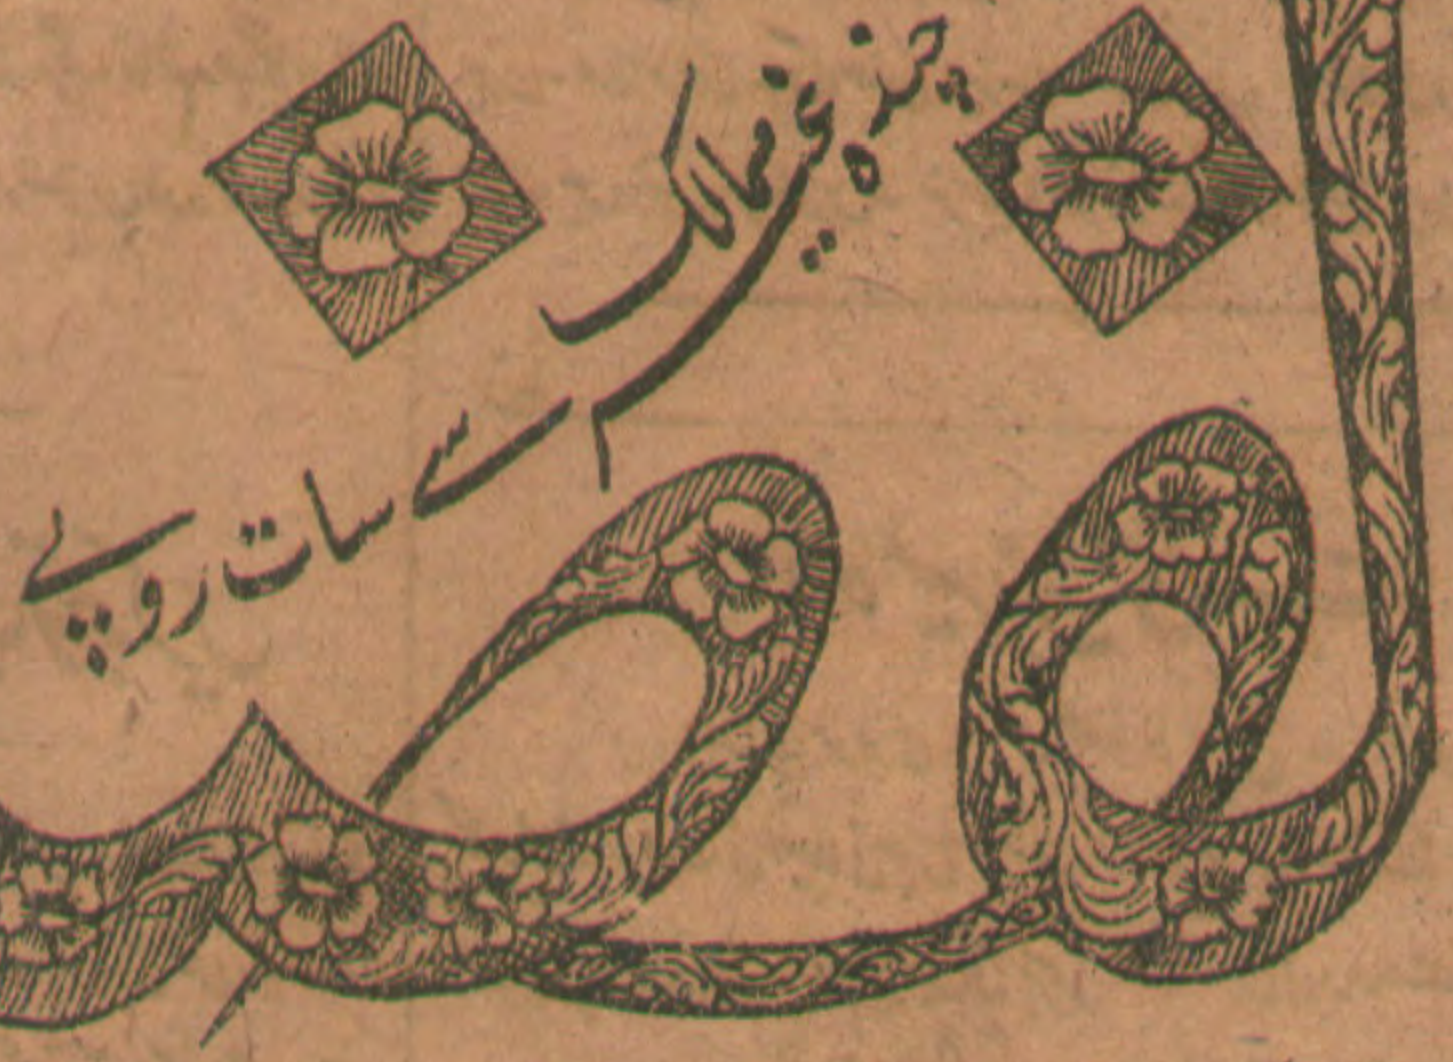 چندہ غیر ممالک
سے سات روپے